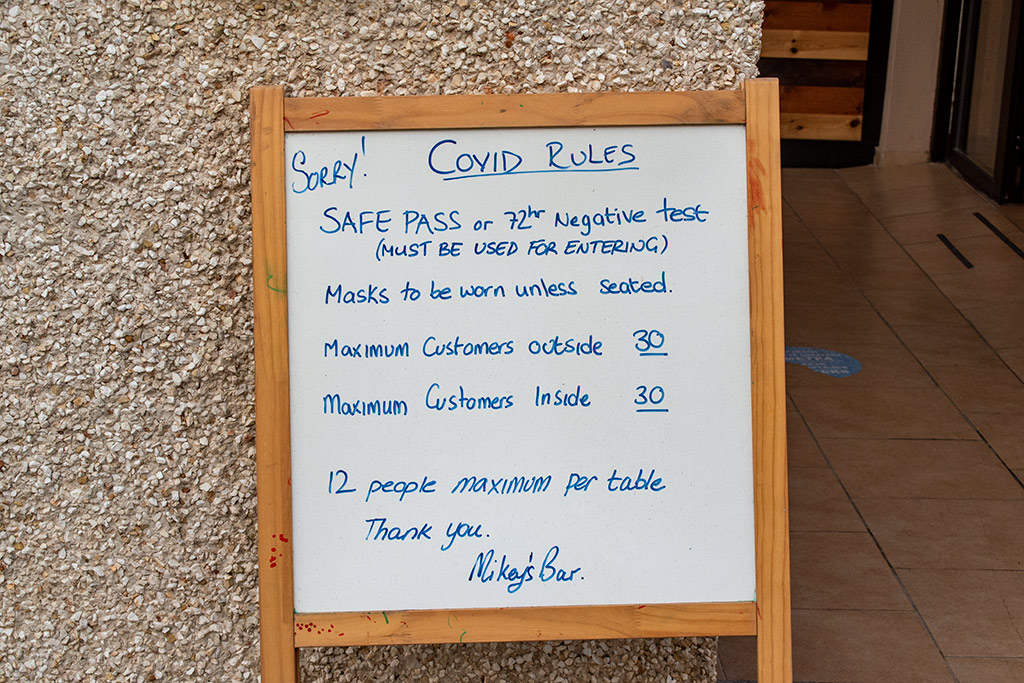 Sorry! COVID RULES
SAFE PASS or 72hr Negative test
(MUST BE USED FOR ENTERING)
Masks to be worn unless seated.
Maximum Customers outside 30
Maximum Customers Inside 30
12 people maximum per table
Thank you.
Mikey's Bar.